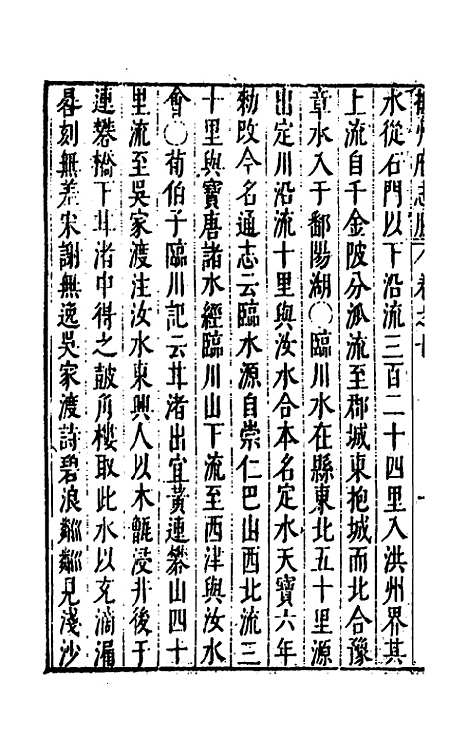 水從石門以下沿流三百二十四里入洪州界其
上流自千金陂分派流至郡城東抱城而北合豫
章水入于鄱陽湖〇臨川水在縣東北五十里源
出定川沿流十里與汝水合本名定水天寶六年
勅改今名通志云臨水源自崇仁巴山西北流三
十里與寶唐諸水經臨川山下流至西津與汝水
會〇荀伯子臨川記云甘渚出宜黃連礬山四十
里流至吳家渡注汝水東興人以木甑浸井後于
連礬橋下甘渚中得之鼓角樓取此水以充滴漏
晷刻無差宋謝無逸吳家渡詩碧浪粼粼見淺沙